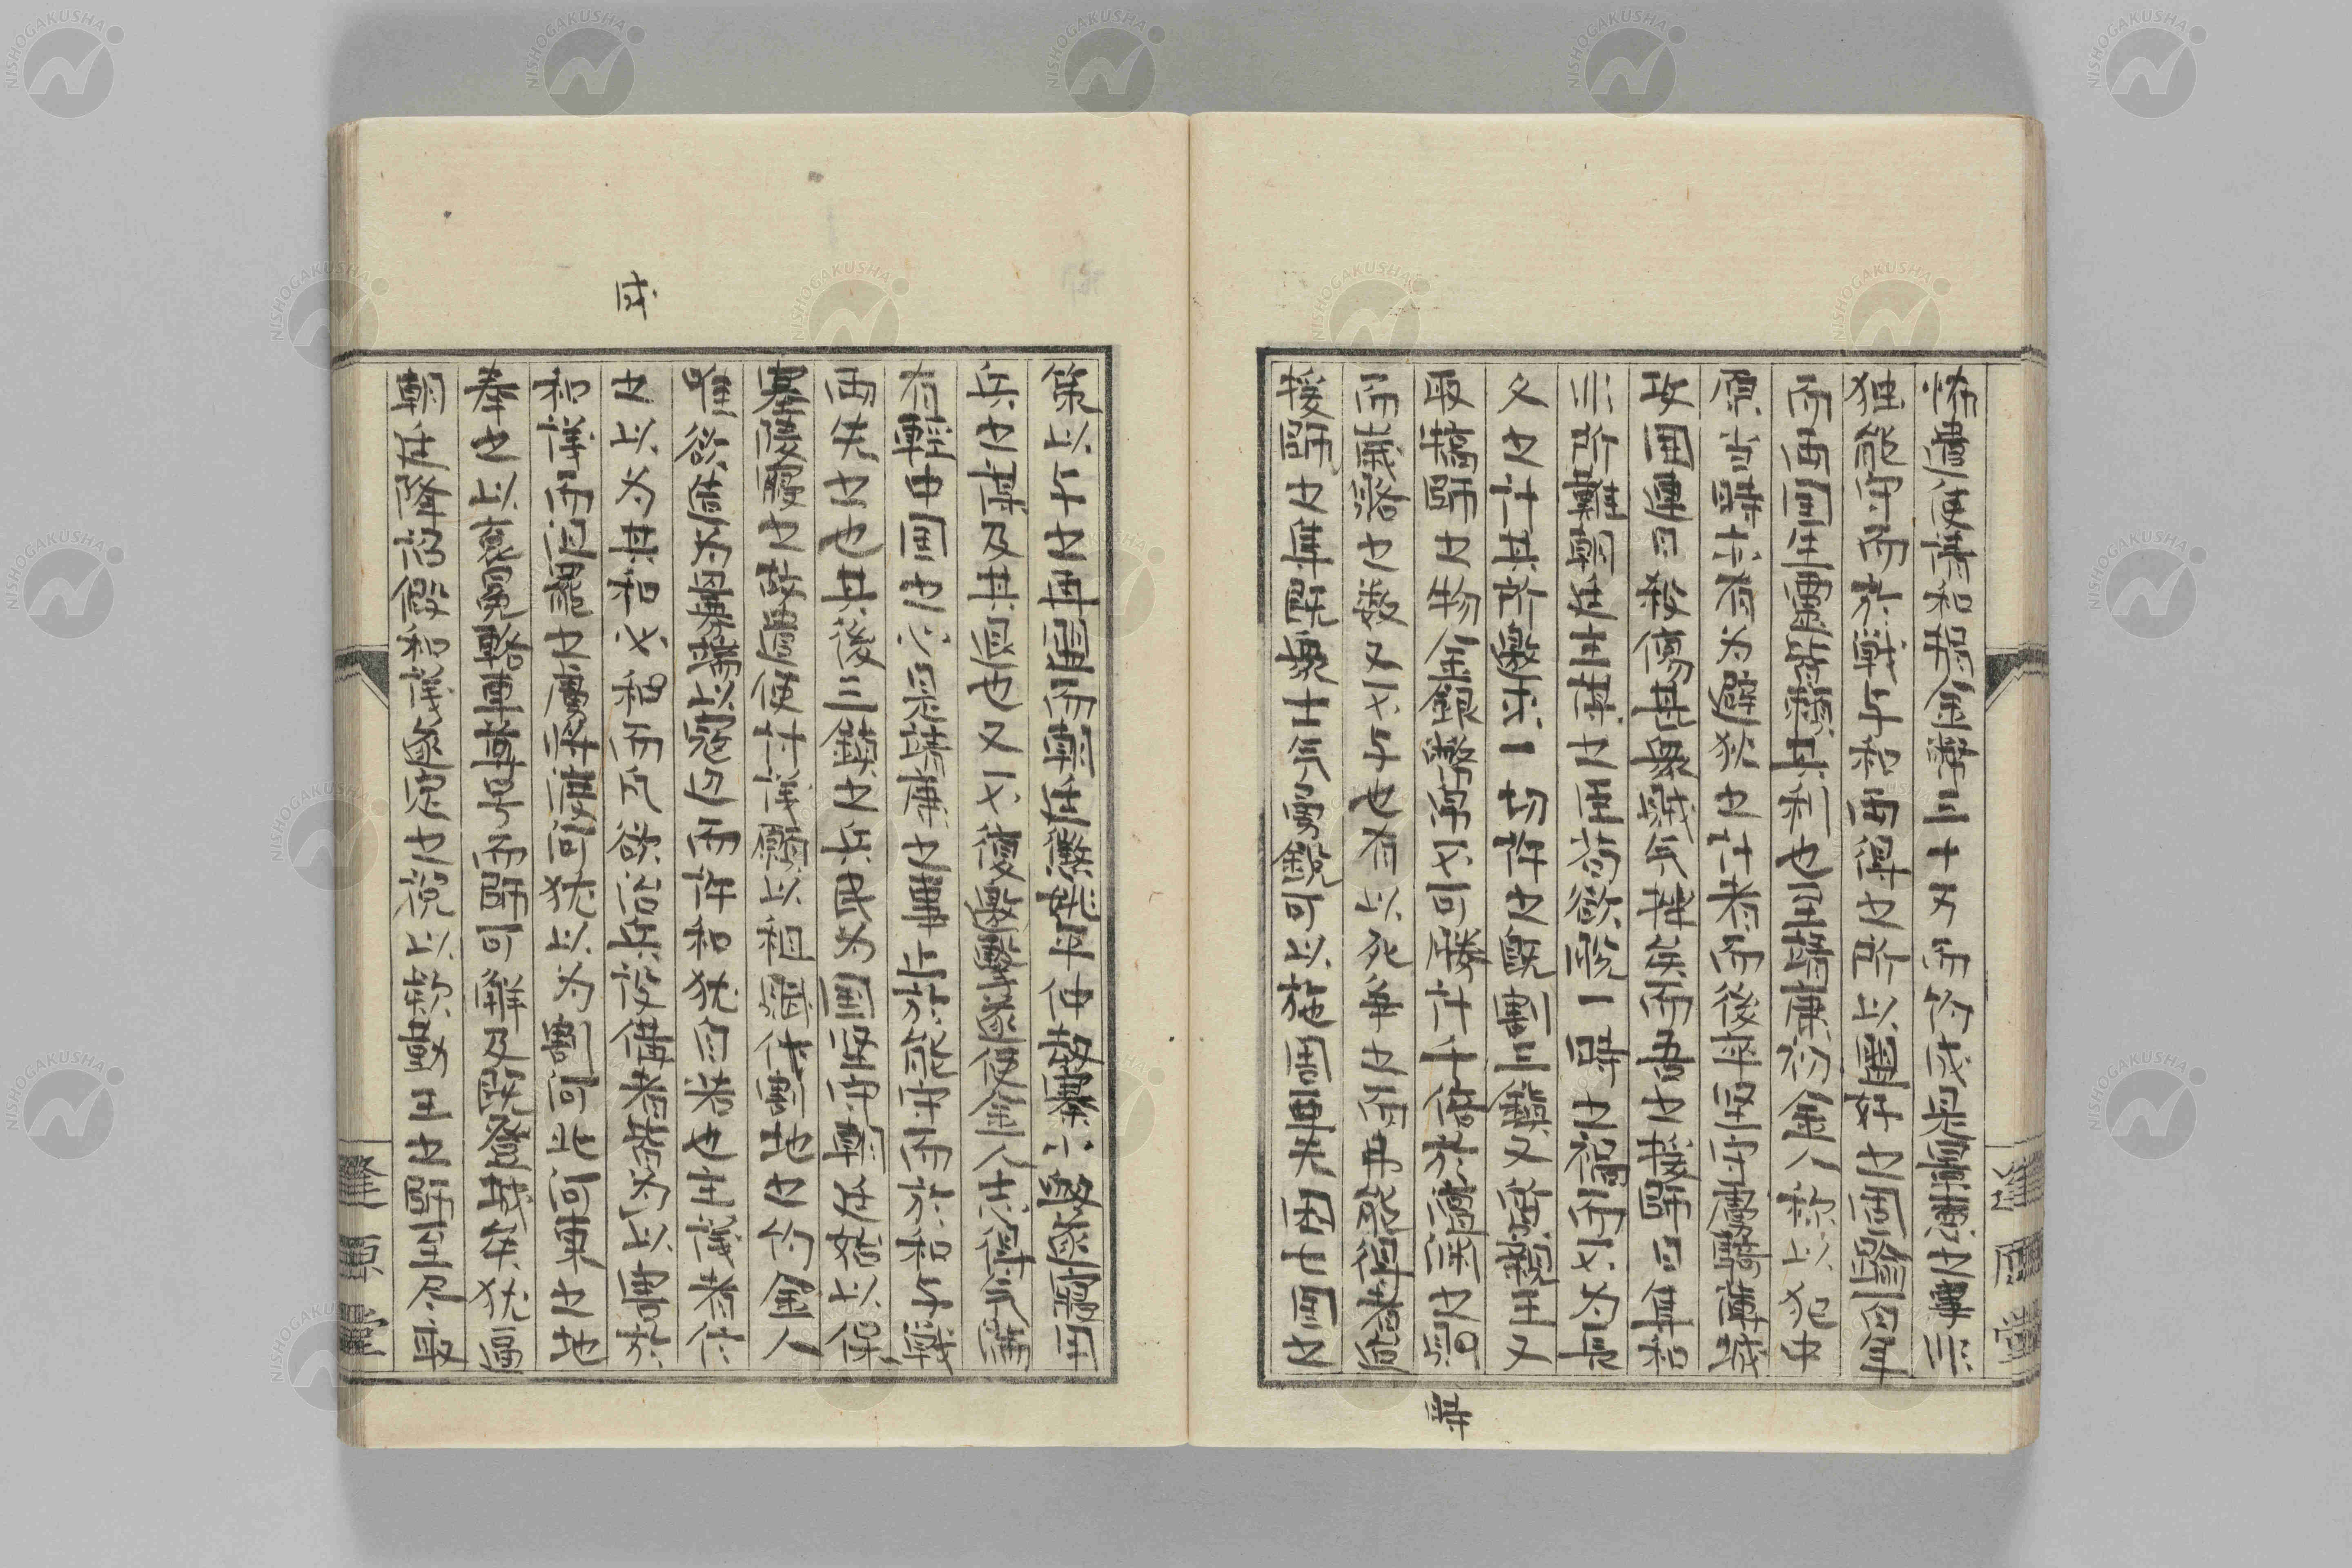 怖遣使講和捐金幣三十万而約成是景德之事非
独能守而於戦与和両得之所以圖好之固踰百年
而両国生靈皆頼其利也至靖康初金人款以犯中
原当時亦有为避狄之計者而後率堅守虜騎薄城
攻囲連日殺傷甚衆賊气挫矣而吾之援師日集和
非所難朝廷主謀之臣苟欲脱一時之禍而不为長
久之計其所邀求一切許之既割三鎮又質親王又
取犒師之物金銀幣帛不可勝計千倍於澶渊之
而歳洛之数又不与也有以死争之而弗能得者向
援師之集既衆士气勇鋭可以施周亜夫困七国之
策以与之再盟而朝廷懲姚平仲劫寨小衂遂寢用
兵之謀及其退也又不復邀擊遂使金人志得气滿
有輕中国之心是靖康之事止於能守而於和与戦
両失之也其後三鎮之兵民为国堅守朝廷始以保
塞陵寢之故遣使計議願以租賦代割地之約金人
唯欲藉为舋端以寇边而許和犹自若也主議者什
之以为其和必和而凡欲治兵設備者皆为以害於
和議而沮罷之虜将渡河犹以为割河北河東之地
奉之以衮冕輅車尊号而師可解及既登城矣犹逼
朝廷降詔假和議遂定之説以款勤王之師至尽取